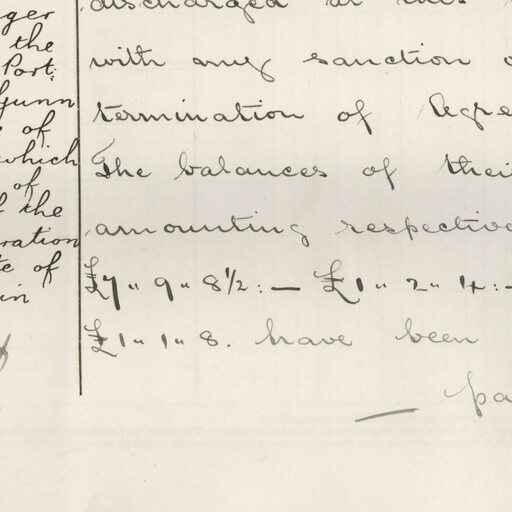 ger
the
Port:
Gunn
of
which
of
the
ration
te of
in
discharged at this
with any sanction
termination of Agre
The balances of thei
amounting respective
£7 " 9 " 8½ : — £1 " 2 " 4 : -
£1 " 1 " 8. have been
— pa